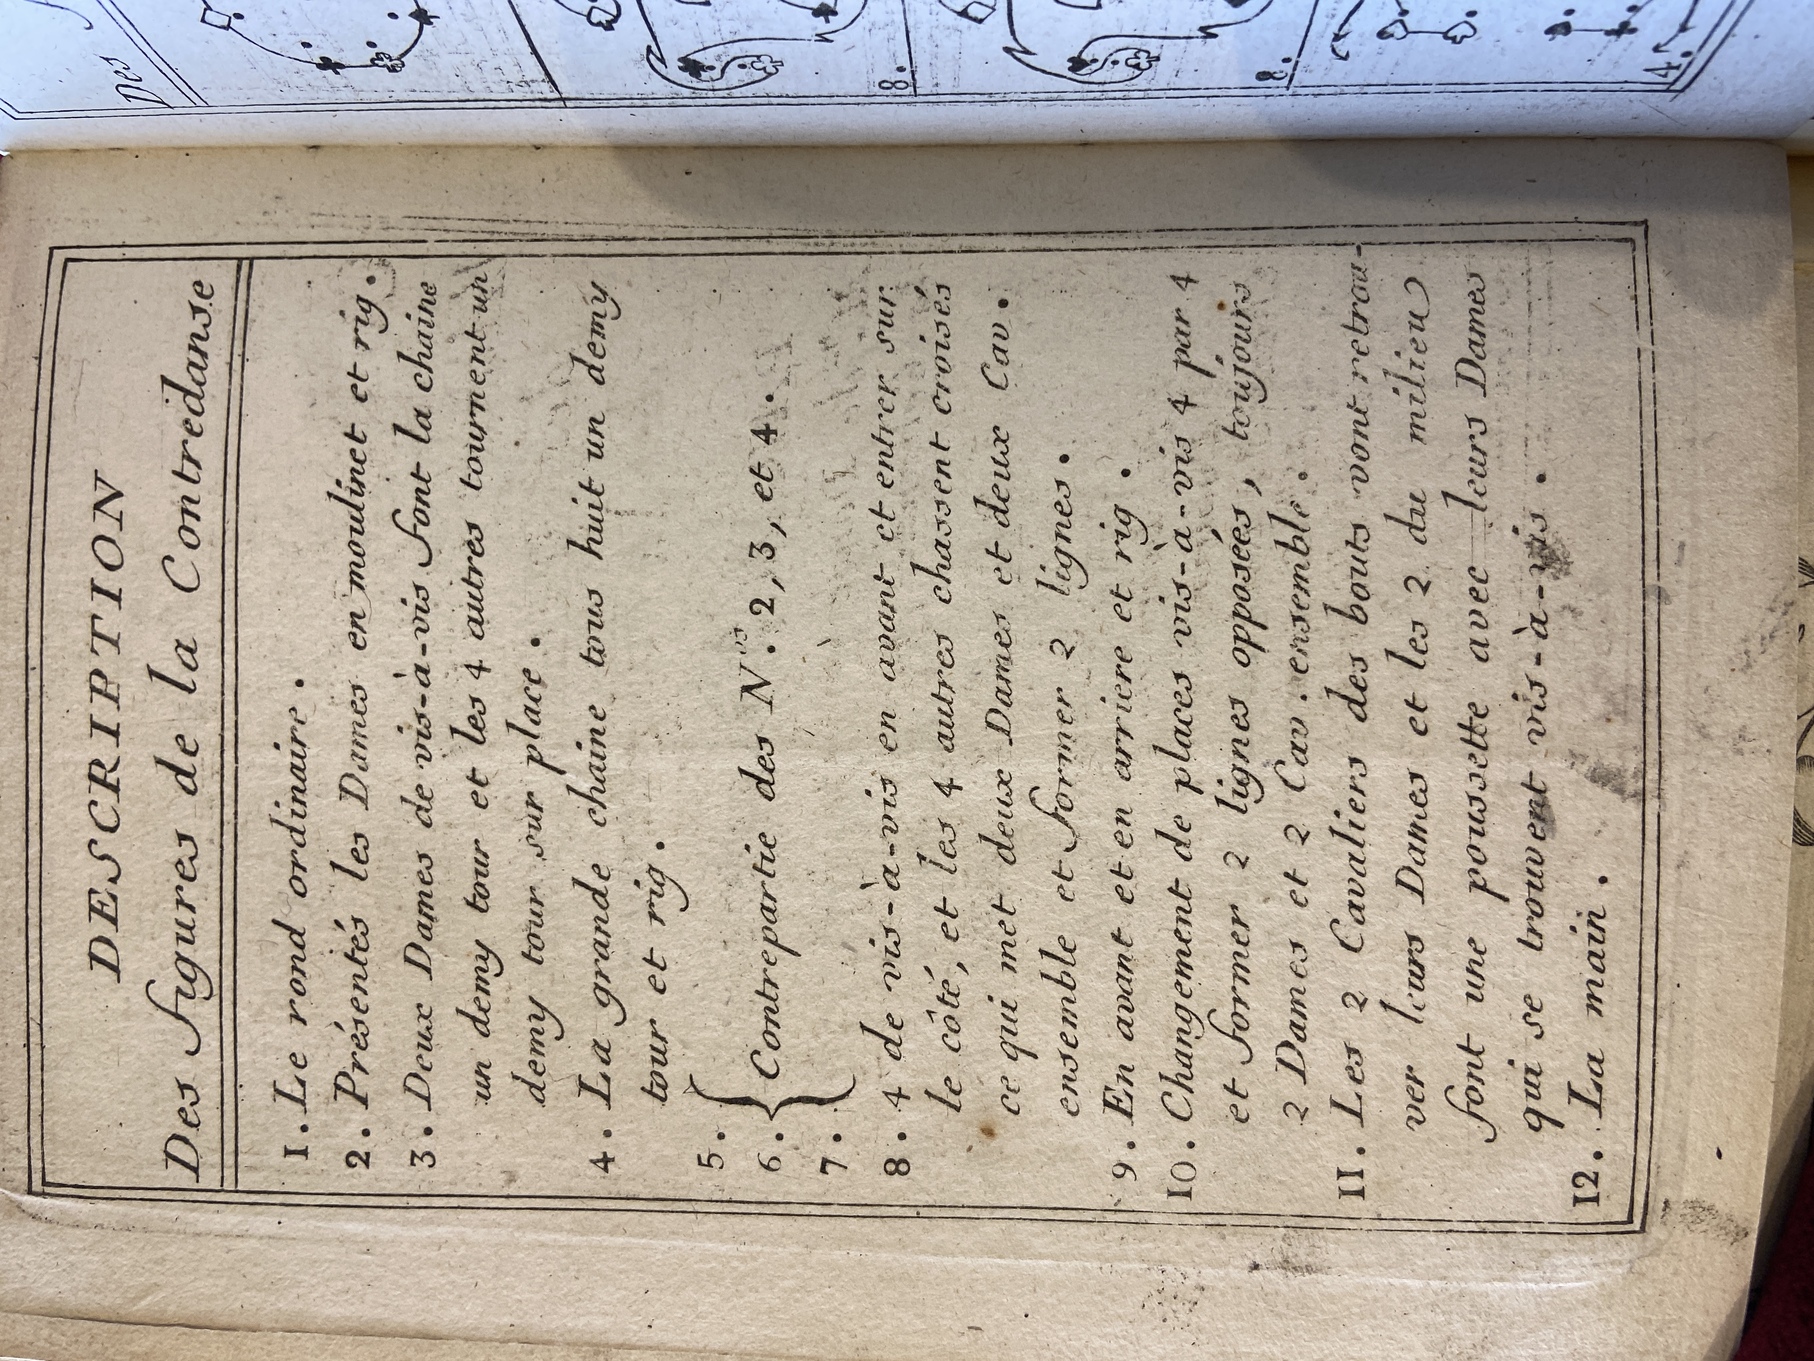 DESCRIPTION
Des figures de la Contredanse
1. Le rond ordinaire.
2. Présentés les Dames en moulinet et rig.
3. Deux Dames de vis-à-vis font la chaine
un demy tour et les 4 autres tournent un
demy tour sur place.
4. La grande chaine tous huit un demy
tour et rig.
5.
6. Contrepartie des N.rs 2, 3, et 4.
7.
8. 4 de vis-à-vis en avant et entrer sur
le côté, et les 4 autres chassent croisés
ce qui met deux Dames et deux Cav.
ensemble et former 2 lignes.
9. En avant et en arriere et rig.
10. Changement de places vis-à-vis 4 par 4
et former 2 lignes opposées, toujours
2 Dames et 2 Cav. ensemble.
11. Les 2 Cavaliers des bouts vont retrou-
ver leurs Dames et les 2 du milieu
font une poussette avec leurs Dames
qui se trouvent vis-à-vis.
12. La main.
Des
8.
8.
4.